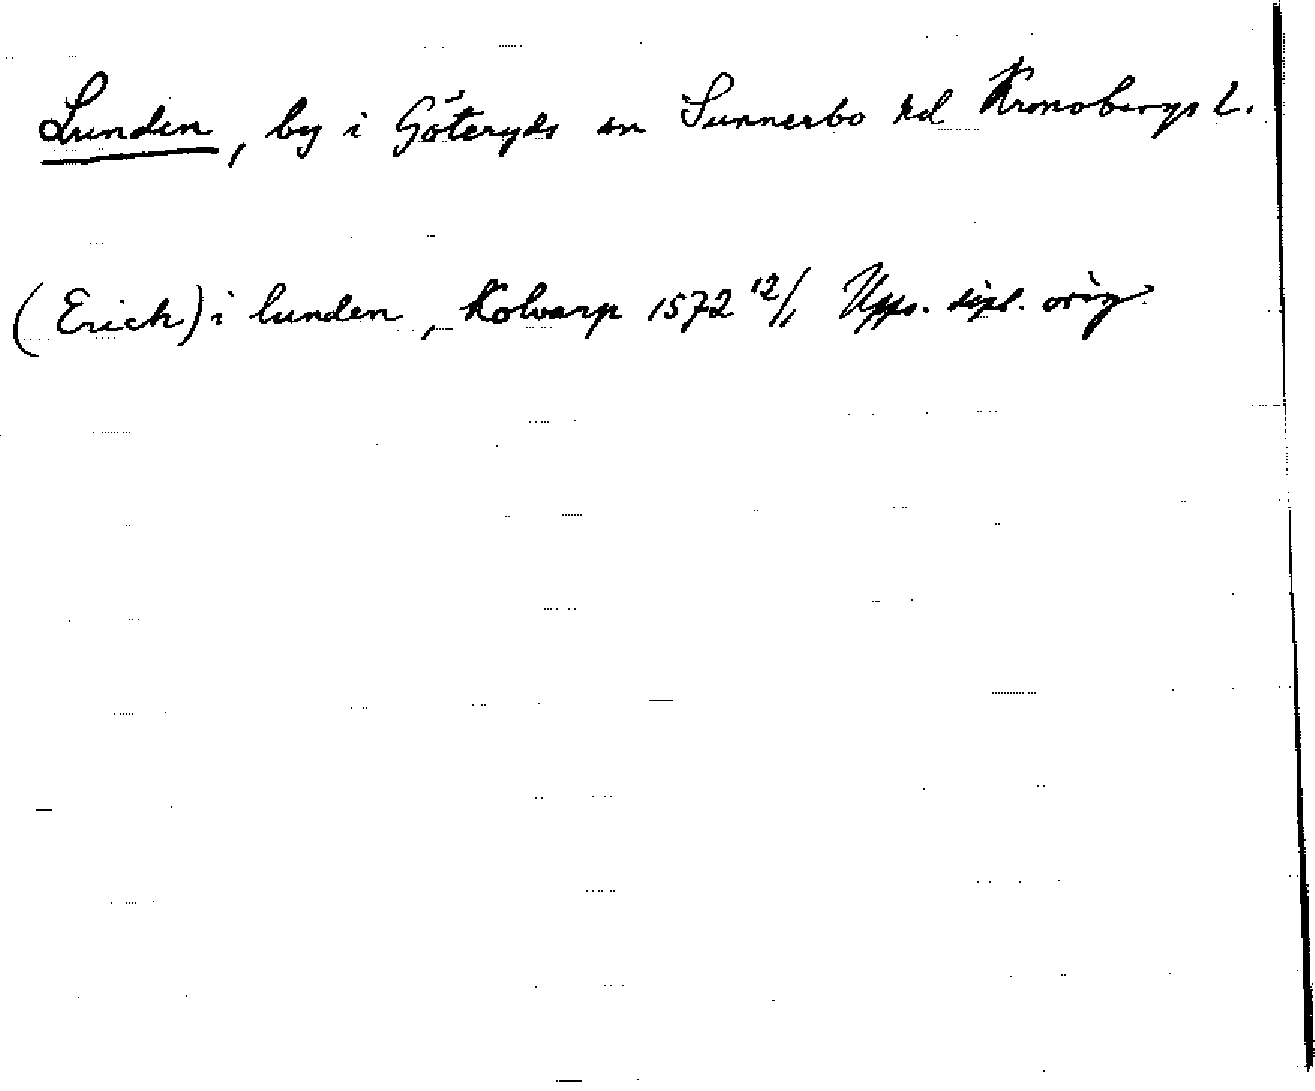 Lunden, by i Göteryds sn Sunnerbo hd Kronobergs L.
(Erich) i lunden, Kolvarp 1572 12/1 Upps. dipl. orig